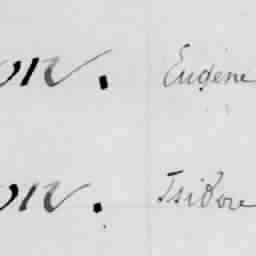 on. Eugène
on. Isidore